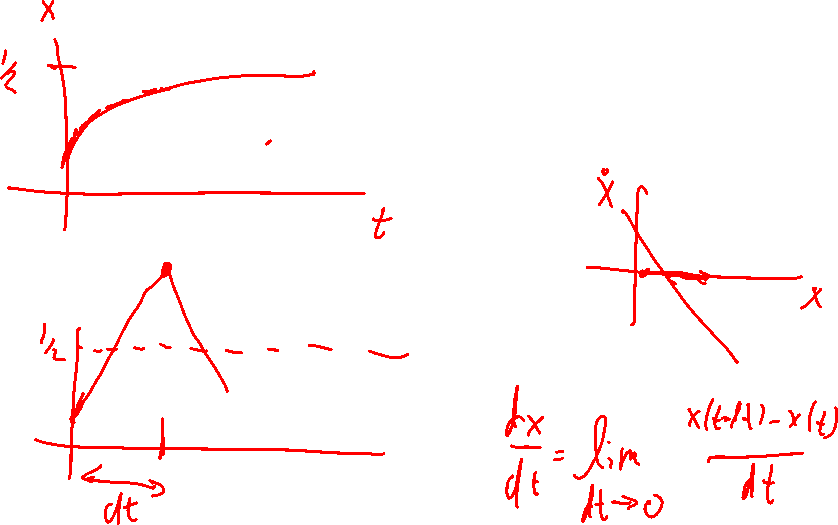 x
1/2
t
1/2
dt
ẋ
x
dx/dt = lim dt→0 x(t+dt) - x(t) / dt